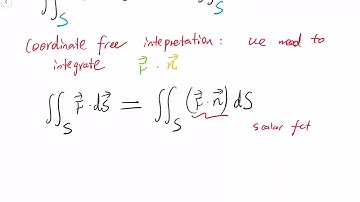 ∬_S ∬_S
Coordinate free intepretation: we need to
integrate F⃗ · n⃗
∬_S F⃗ · dS⃗ = ∬_S (F⃗ · n⃗) dS
scalar fct